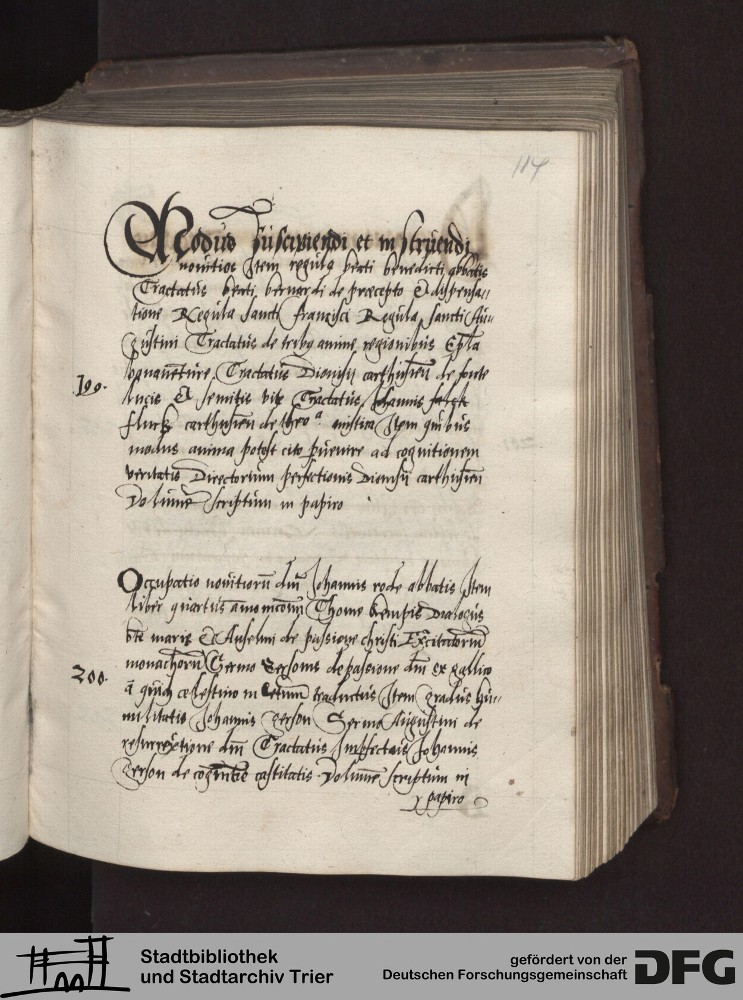 114
Modus suscipiendi et instruendi
novitios Item regula beati benedicti abbatis
Tractatus beati bernardi de præcepto & dispensa=
tione Regula sancti francisci Regula sancti Au=
gustini Tractatus de tribus anime regionibus Epła
bonaventure Tractatus Dionisii carthusien de fonte
199.
lucis & semitis vite Tractatus Iohannis
carthusien de theoᵃ mistica Item quibus
modus anima potest cito puenire ad cognitionem
veritatis Directorium perfectionis Dionisii carthusien
Volumē scriptum in papiro
Occupatio novitiorū dm̄ Iohannis rode abbatis Item
liber quartus Thome kempis Dialogus
bte marie & Anselmi de passione christi Excitatoriū
monachorū Sermo Gersonis de passione dm̄ ex gallico
200.
a quodā celestino in latinum traductus Item gradus hu=
militatis Iohannis gerson Sermo Augustini de
resurrectione dm̄ Tractatus Imperfectus Iohannis
gerson de castitatis Volumē scriptum in
papiro
Stadtbibliothek
und Stadtarchiv Trier
gefördert von der
Deutschen Forschungsgemeinschaft
DFG